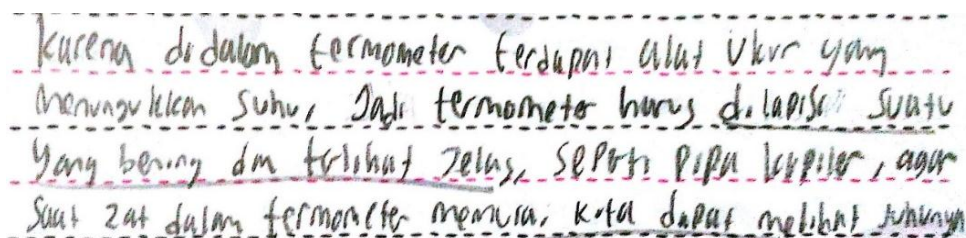 Karena di dalam termometer terdapat alat ukur yang
menunjukkan suhu, Jadi termometer harus dilapisi suatu
yang bening dan terlihat jelas, seperti pipa kapiler, agar
saat zat dalam termometer memuai kita dapat melihat suhunya